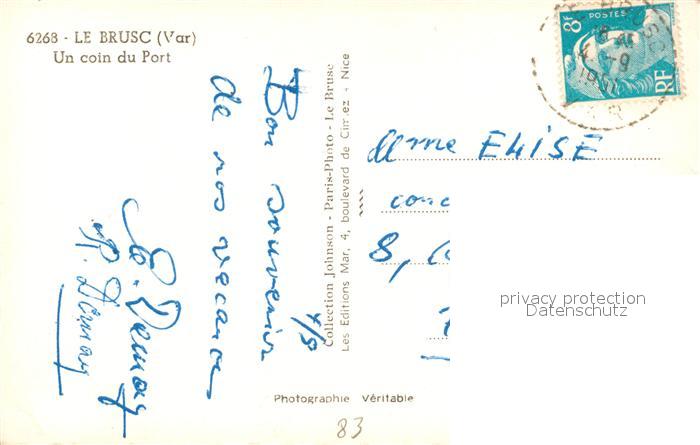 6268 - LE BRUSC (Var)
Un coin du Port
8F
POSTES
RF
Bon souvenir
de nos vacances
4/9
Collection Johnson - Paris-Photo - Le Brusc
Les Editions Mar, 4, boulevard de Cimiez - Nice
Mme ELISE
conc
8,
privacy protection
Datenschutz
Photographie Véritable
83